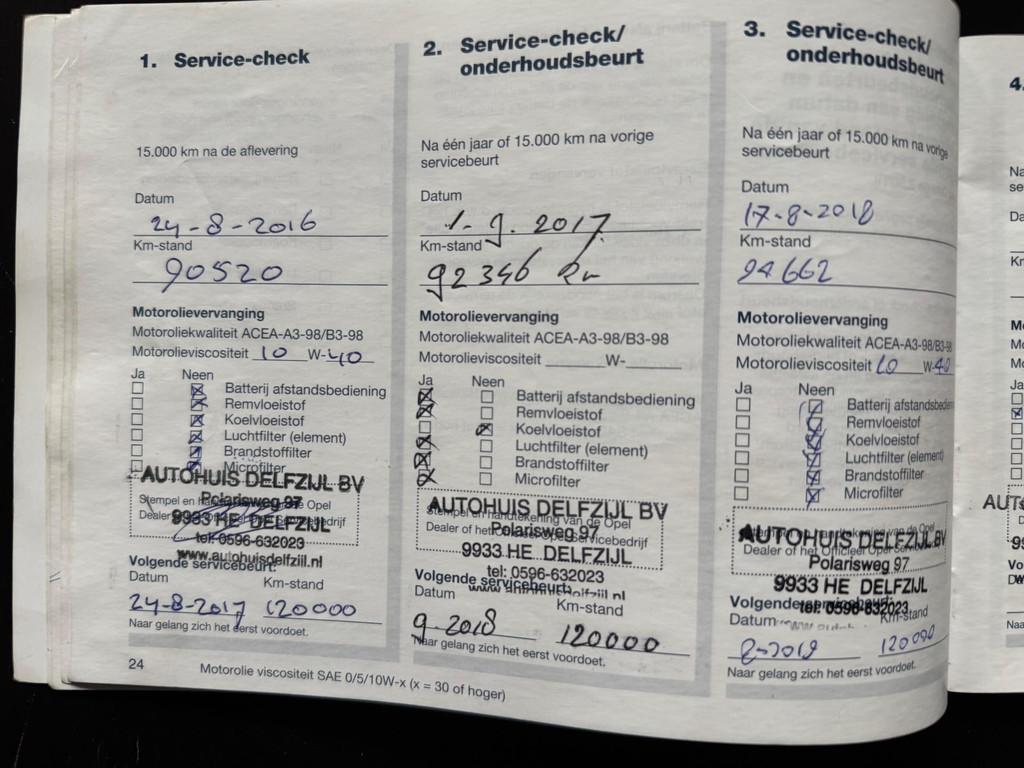 1. Service-check
15.000 km na de aflevering
Datum
24-8-2016
Km-stand
90520
Motorolievervanging
Motoroliekwaliteit ACEA-A3-98/B3-98
Motorolieviscositeit 10 W-40
Ja Neen
Batterij afstandsbediening
Remvloeistof
Koelvloeistof
Luchtfilter (element)
Brandstoffilter
Microfilter
AUTOHUIS DELFZIJL BV
Stempel en handtekening van de Opel
Polarisweg 97
Dealer of het Officieel Opel Servicebedrijf
9933 HE DELFZIJL
tel: 0596-632023
www.autohuisdelfzijl.nl
Volgende servicebeurt:
Datum Km-stand
24-8-2017 120000
Naar gelang zich het eerst voordoet.
24
Motorolie viscositeit SAE 0/5/10W-x (x = 30 of hoger)
2. Service-check/
onderhoudsbeurt
Na één jaar of 15.000 km na vorige
servicebeurt
Datum
1-9-2017
Km-stand
92346 km
Motorolievervanging
Motoroliekwaliteit ACEA-A3-98/B3-98
Motorolieviscositeit W-
Ja Neen
Batterij afstandsbediening
Remvloeistof
Koelvloeistof
Luchtfilter (element)
Brandstoffilter
Microfilter
AUTOHUIS DELFZIJL BV
Stempel en handtekening van de Opel
Polarisweg 97
Dealer of het Officieel Opel Servicebedrijf
9933 HE DELFZIJL
tel: 0596-632023
Volgende servicebeurt:
Datum Km-stand
9-2018 120000
Naar gelang zich het eerst voordoet.
3. Service-check/
onderhoudsbeurt
Na één jaar of 15.000 km na vorige
servicebeurt
Datum
17-8-2018
Km-stand
94662
Motorolievervanging
Motoroliekwaliteit ACEA-A3-98/B3-98
Motorolieviscositeit 10 W-40
Ja Neen
Batterij afstandsbediening
Remvloeistof
Koelvloeistof
Luchtfilter (element)
Brandstoffilter
Microfilter
AUTOHUIS DELFZIJL BV
Dealer of het Officieel Opel
Polarisweg 97
9933 HE DELFZIJL
tel: 0596-632023
Volgende servicebeurt:
Datum Km-stand
8-2019 120000
Naar gelang zich het eerst voordoet.
4.
Ja